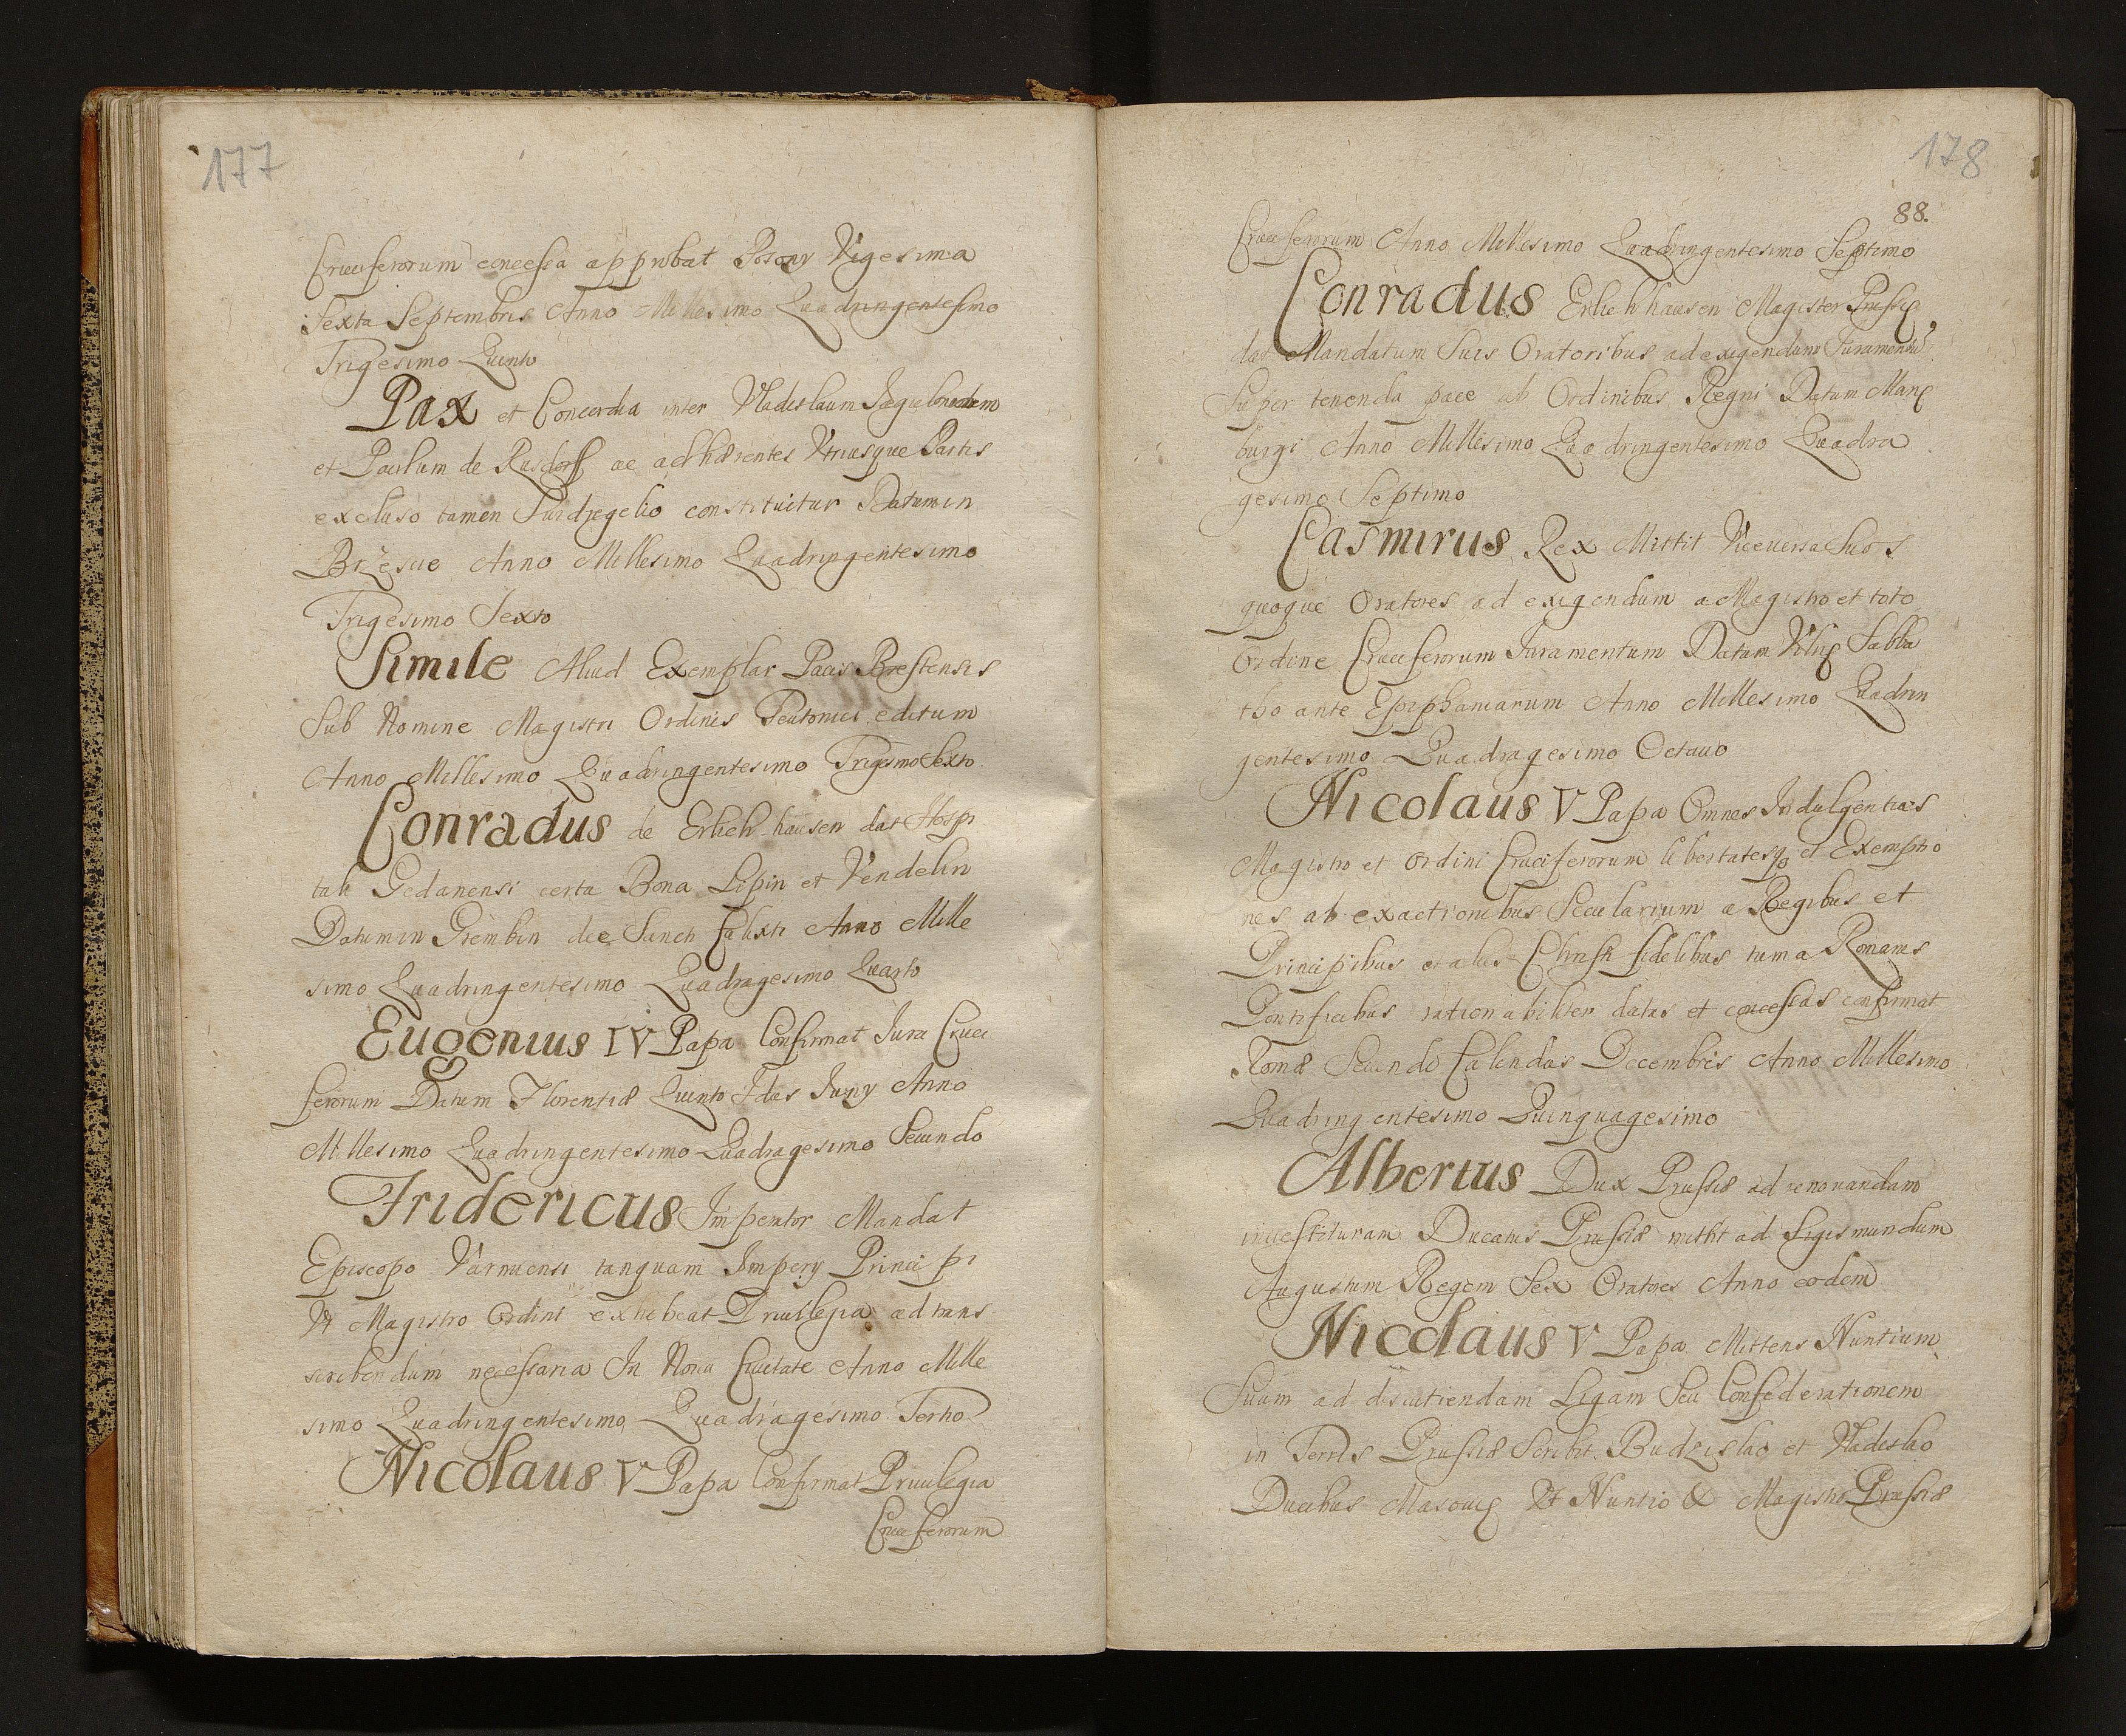 177
Cruciferorum concessa approbat Posony Vigesima
Sexta Septembris Anno Millesimo Quadringentesimo
Trigesimo Quinto
Pax et Concordia inter Vladislaum
et Paulum de Rusdorff ac adhærentes Vtriusque Partis
excluso tamen constituitur Datum in
Brzescie Anno Millesimo Quadringentesimo
Trigesimo Sexto
Simile Aliud Exemplar Pacis Brestensis
Sub Nomine Magistri Ordinis Teutonici editum
Anno Millesimo Quadringentesimo Trigesimo Sexto
Conradus de Erlich-hausen dat Hospi
tali Gedanensi certa Bona Lipin et Vendelin
Datum in Grembin die Sancti Calixti Anno Mille
simo Quadringentesimo Quadragesimo Quarto
Eugenius IV Papa Confirmat Iura Cruci
ferorum Datum Florentiæ Quinto Idas Iuny Anno
Millesimo Quadringentesimo Quadragesimo Secundo
Fridericus Imperator Mandat
Episcopo Varmiensi tanquam Impery Principi
Vt Magistro Ordini exhibeat Priuilegia ad trans
scribendum necessaria In Noua Ciuitate Anno Mille
simo Quadringentesimo Quadragesimo Tertio
Nicolaus V Papa Confirmat Priuilegia
Cruciferorum
178
88.
Cruciferorum Anno Millesimo Quadringentesimo Septimo
Conradus Erlichhausen Magister Prussię
dat Mandatum Suis Oratoribus ad exigendum Iuramentū
Super tenenda pace ab Ordinibus Regni Datum Marię
burgi Anno Millesimo Quadringentesimo Quadra
gesimo Septimo
Casmirus Rex Mittit Viceuersa Suos
quoque Oratores ad exigendum a Magistro et toto
Ordine Cruciferorum Iuramentum Datum Vilnę Sabba
tho ante Epiphaniarum Anno Millesimo Quadrin
gentesimo Quadragesimo Octauo
Nicolaus V Papa Omnes Indulgentias
Magistro et Ordini Cruciferorum libertatesq3 et Exemptio
nes ab exactionibus Secularium a Regibus et
Principibus et alijs Christi fidelibus tum a Romanis
Pontificibus rationabiliter datas et concessas confirmat
Romæ Secundo Calendas Decembris Anno Millesimo
Quadringentesimo Quinquagesimo
Albertus Dux Prussiæ ad renouandam
inuestituram Ducatus Prussiæ mittit ad Sigismundum
Augustum Regem Sex Oratores Anno eodem
Nicolaus V Papa Mittens Nuntium
Suum ad discutiendam Ligam Seu Confederationem
in Terris Prussiæ Scribit Budzislao et Vladislao
Ducibus Masouię Vt Nuntio & Magistro Prussiæ